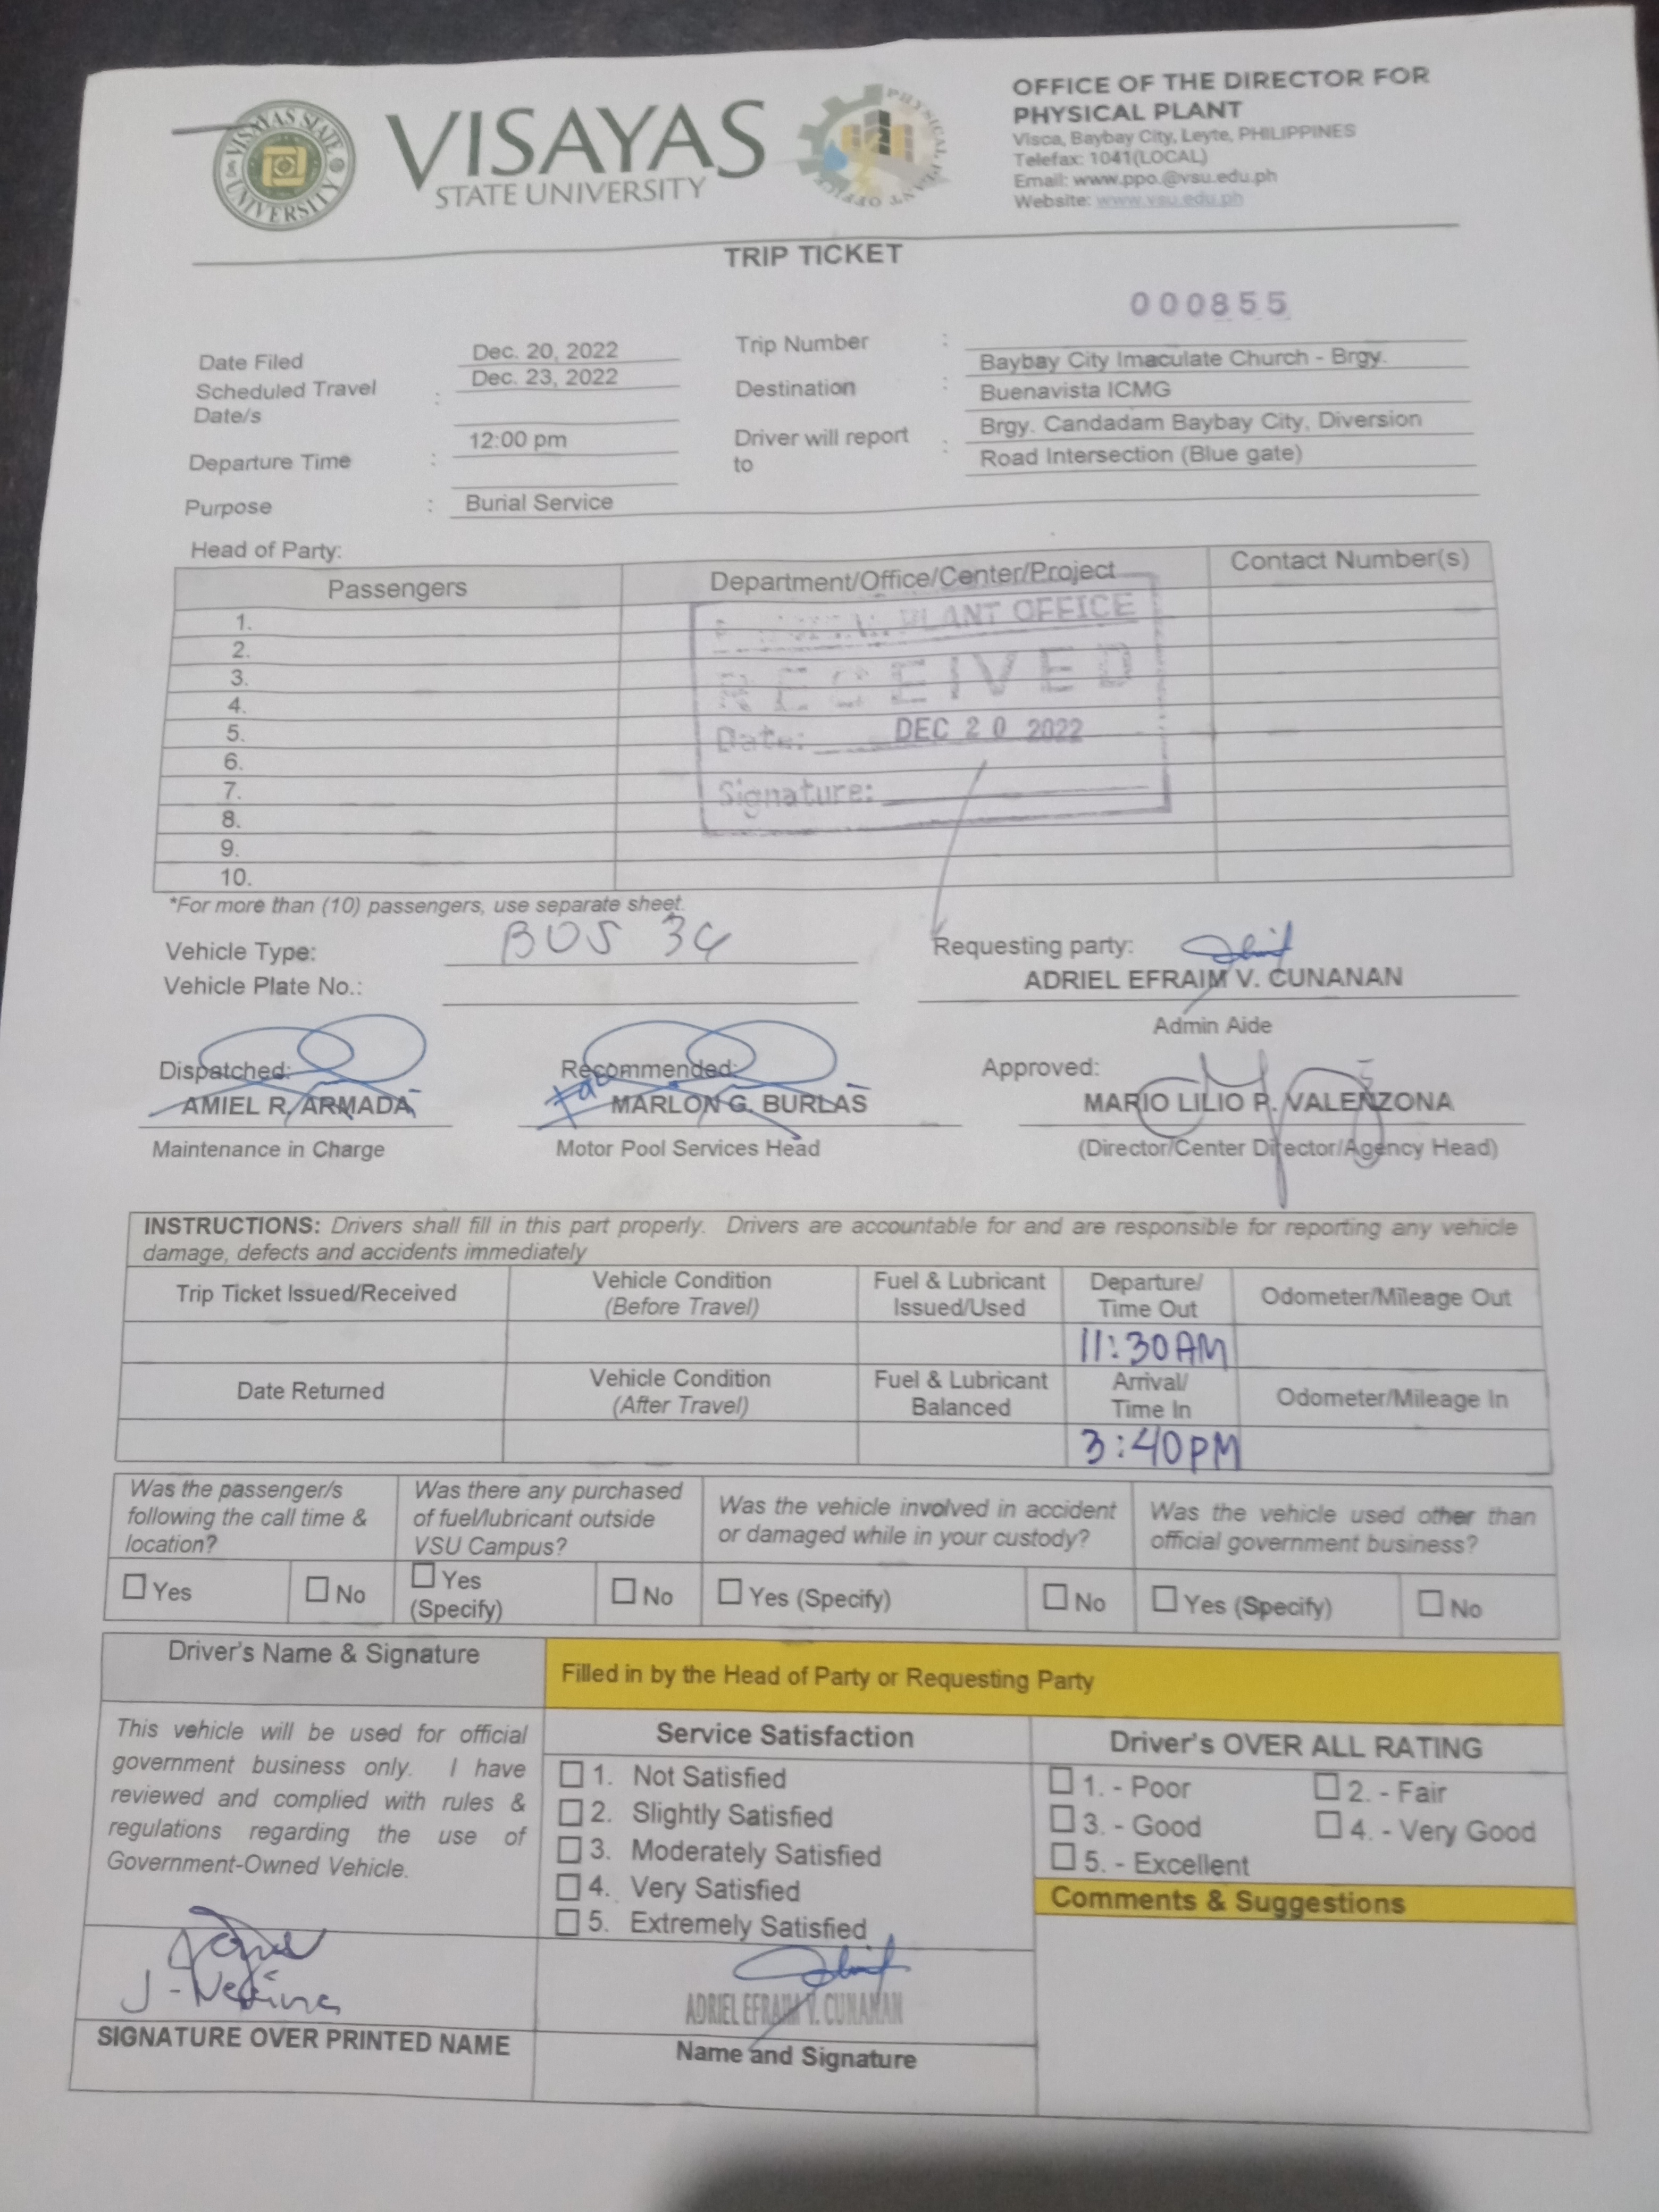 VISAYAS STATE UNIVERSITY
VISAYAS
STATE UNIVERSITY
PHYSICAL PLANT OFFICE
OFFICE OF THE DIRECTOR FOR
PHYSICAL PLANT
Visca, Baybay City, Leyte, PHILIPPINES
Telefax: 1041(LOCAL)
Email: www.ppo.@vsu.edu.ph
Website: www.vsu.edu.ph
TRIP TICKET
000855
Date Filed Dec. 20, 2022
Scheduled Travel Date/s : Dec. 23, 2022
Departure Time : 12:00 pm
Purpose : Burial Service
Trip Number :
Destination : Baybay City Imaculate Church - Brgy.
Buenavista ICMG
Driver will report to : Brgy. Candadam Baybay City, Diversion
Road Intersection (Blue gate)
Head of Party:
Passengers Department/Office/Center/Project Contact Number(s)
1.
2.
3.
4.
5.
6.
7.
8.
9.
10.
PLANT OFFICE
RECEIVED
Date: DEC 20 2022
Signature:
*For more than (10) passengers, use separate sheet.
Vehicle Type: BUS 34
Vehicle Plate No.:
Requesting party:
ADRIEL EFRAIM V. CUNANAN
Admin Aide
Dispatched: Recommended: Approved:
AMIEL R. ARMADA MARLON G. BURLAS MARIO LILIO P. VALENZONA
Maintenance in Charge Motor Pool Services Head (Director/Center Director/Agency Head)
INSTRUCTIONS: Drivers shall fill in this part properly. Drivers are accountable for and are responsible for reporting any vehicle
damage, defects and accidents immediately
Trip Ticket Issued/Received Vehicle Condition (Before Travel) Fuel & Lubricant Issued/Used Departure/ Time Out Odometer/Mileage Out
11:30AM
Date Returned Vehicle Condition (After Travel) Fuel & Lubricant Balanced Arrival/ Time In Odometer/Mileage In
3:40PM
Was the passenger/s following the call time & location?
Was there any purchased of fuel/lubricant outside VSU Campus?
Was the vehicle involved in accident or damaged while in your custody?
Was the vehicle used other than official government business?
Yes No Yes (Specify) No Yes (Specify) No Yes (Specify) No
Driver's Name & Signature
Filled in by the Head of Party or Requesting Party
This vehicle will be used for official
government business only. I have
reviewed and complied with rules &
regulations regarding the use of
Government-Owned Vehicle.
Service Satisfaction
1. Not Satisfied
2. Slightly Satisfied
3. Moderately Satisfied
4. Very Satisfied
5. Extremely Satisfied
Driver's OVER ALL RATING
1. - Poor 2. - Fair
3. - Good 4. - Very Good
5. - Excellent
Comments & Suggestions
ADRIEL EFRAIM V. CUNANAN
SIGNATURE OVER PRINTED NAME
Name and Signature